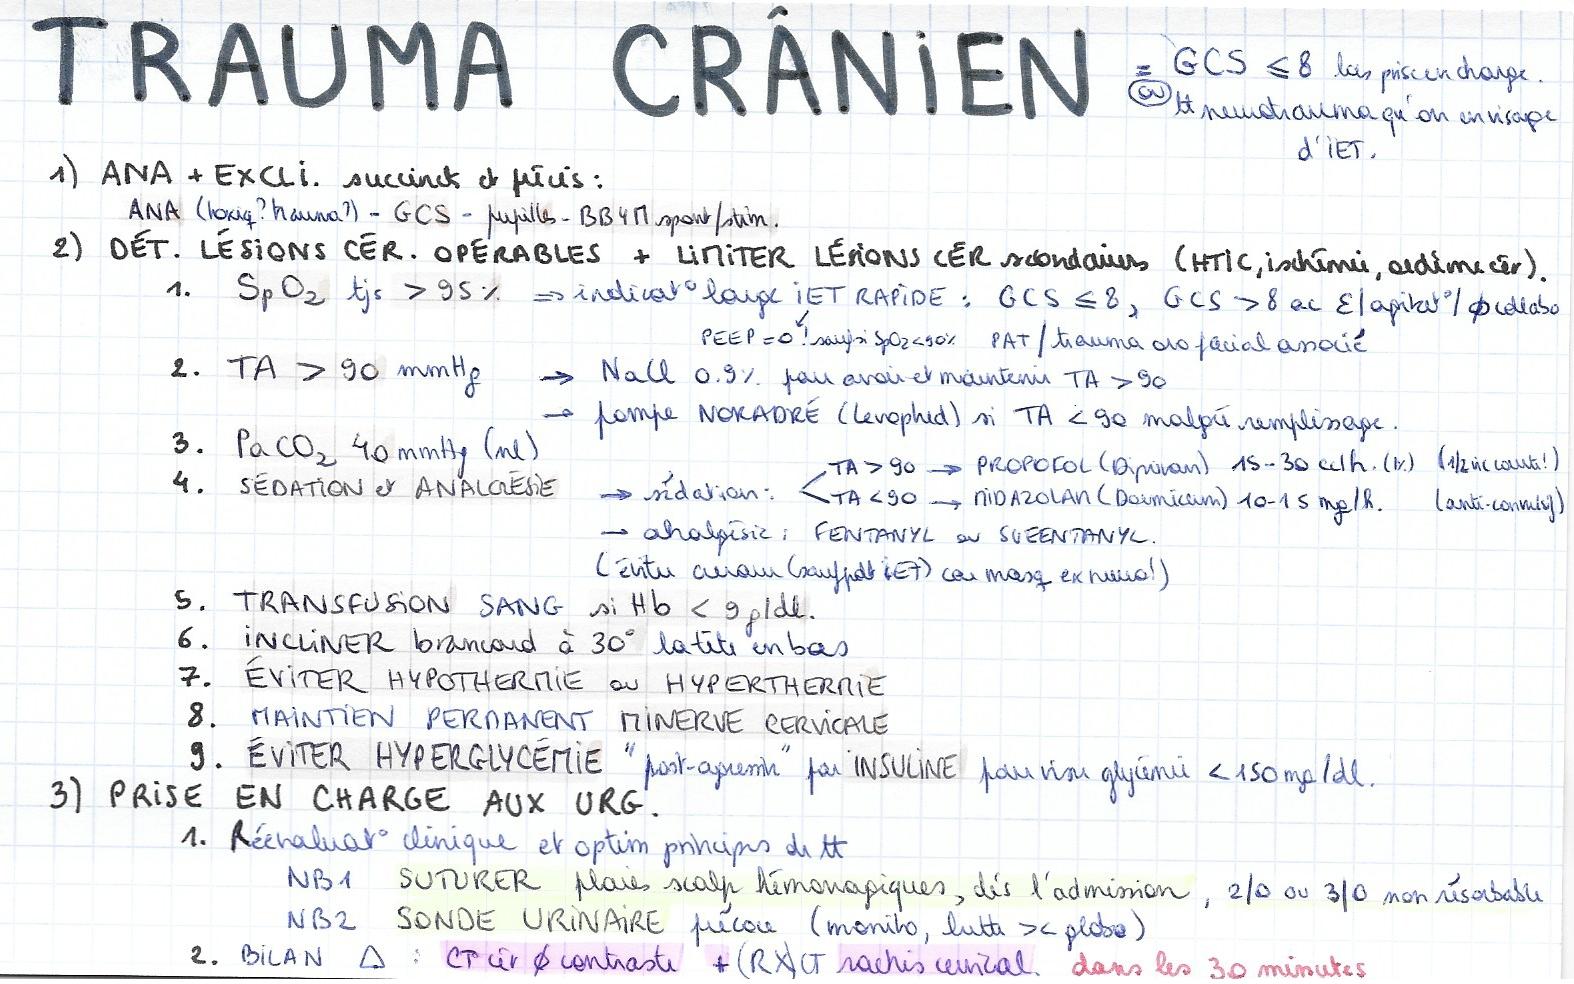 TRAUMA CRÂNIEN = GCS ≤ 8 lors prise en charge.
ou tt neurotrauma qu'on envisage
d'IET.
1) ANA + EXCLI. succincts et précis :
ANA (toxiq? trauma?) - GCS - pupilles - BB4M spont/stim.
2) DÉT. LÉSIONS CÉR. OPÉRABLES + LIMITER LÉSIONS CÉR secondaires (HTIC, ischémie, oedème cér).
1. SpO2 tjs > 95% => indicat° large IET RAPIDE : GCS ≤ 8, GCS > 8 ac E/agitat°/ø collabo
PEEP = 0 ! sauf si SpO2 < 90% PAT/trauma oro facial associé
2. TA > 90 mmHg → NaCl 0.9% pour avoir et maintenir TA > 90
→ pompe NORADRÉ (Levophed) si TA < 90 malgré remplissage.
3. PaCO2 40 mmHg (nl)
4. SÉDATION et ANALGÉSIE → sédation : TA > 90 → PROPOFOL (Diprivan) 15-30 cc/h. (IV) (1/2 vie courte!)
TA < 90 → MIDAZOLAM (Dormicum) 10-15 mg/h. (anti-convulsif)
→ analgésie : FENTANYL ou SUFENTANYL.
(Éviter curare (sauf pdt IET) car masq ex neuro!)
5. TRANSFUSION SANG si Hb < 9 g/dl.
6. INCLINER brancard à 30° la tête en bas
7. ÉVITER HYPOTHERMIE ou HYPERTHERMIE
8. MAINTIEN PERMANENT MINERVE CERVICALE
9. ÉVITER HYPERGLYCÉMIE "post-agression" par INSULINE pour viser glycémie < 150 mg/dl.
3) PRISE EN CHARGE AUX URG.
1. Réévaluat° clinique et optim principes de tt
NB1 SUTURER plaies scalp hémorragiques, dès l'admission, 2/0 ou 3/0 non résorbable
NB2 SONDE URINAIRE précoce (monito, lutte >< globe)
2. BILAN Δ : CT cér ø contraste + (RX)CT rachis cervical. dans les 30 minutes